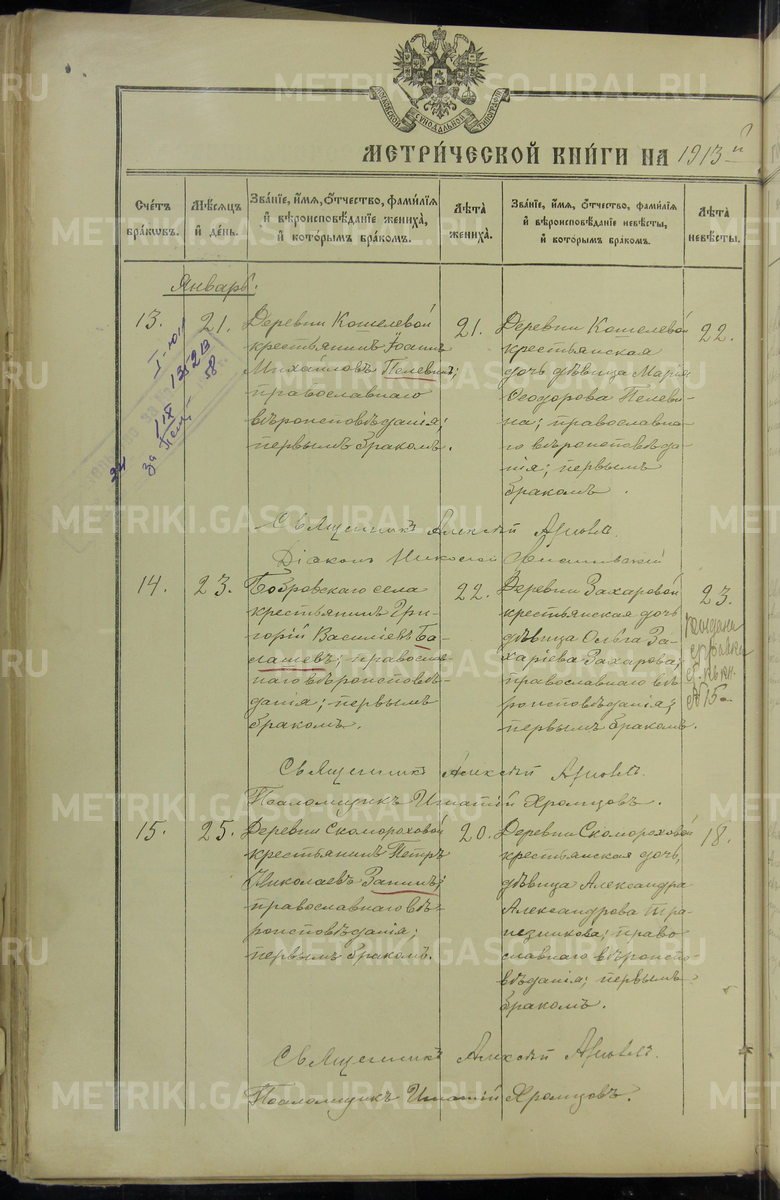 МЕТРИ́ЧЕСКОЙ КНИ́ГИ НА 1913 й
Сче́тъ бра́кѡвъ.
Мѣ́сяцъ и҆ де́нь.
Зва́нїе, и҆́мѧ, ѻ҆́тчество, фами́лїѧ и҆ вѣроисповѣ́данїе жениха̀, и҆ кото́рымъ бра́комъ.
Лѣ́та жениха̀.
Зва́нїе, и҆́мѧ, ѻ҆́тчество, фами́лїѧ и҆ вѣроисповѣ́данїе невѣ́сты, и҆ кото́рымъ бра́комъ.
Лѣ́та невѣ́сты.
Январь.
13.
21.
Деревни Кошелевой
крестьянинъ Іоаннъ
Михайловъ Пелевинъ;
православнаго
вѣроисповѣданія;
первымъ бракомъ.
21.
Деревни Кошелевой
крестьянская
дочь дѣвица Марія
Ѳеодорова Пелеви-
на; православна-
го вѣроисповѣда-
нія; первымъ
бракомъ.
22.
Священникъ Алексѣй
Діаконъ Николай
14.
23.
Бобровскаго села
крестьянинъ Гри-
горій Васильевъ Ба-
лашевъ; православ-
наго вѣроисповѣ-
данія; первымъ
бракомъ.
22.
Деревни Захаровой
крестьянская дочь
дѣвица Ольга За-
харіева Захарова;
православнаго вѣ-
роисповѣданія;
первымъ бракомъ.
23.
выдана
справка
№ 15
Священникъ Алексѣй
Псаломщикъ Игнатій Хромцовъ.
15.
25.
Деревни Скомороховой
крестьянинъ Петръ
Николаевъ Запинъ;
православнаго вѣ-
роисповѣданія;
первымъ бракомъ.
20.
Деревни Скомороховой
крестьянская дочь,
дѣвица Александра
Александрова Тра-
пезникова; право-
славнаго вѣроиспо-
вѣданія; первымъ
бракомъ.
18.
Священникъ Алексѣй
Псаломщикъ Игнатій Хромцовъ.
METRIKI.GASO-URAL.RU